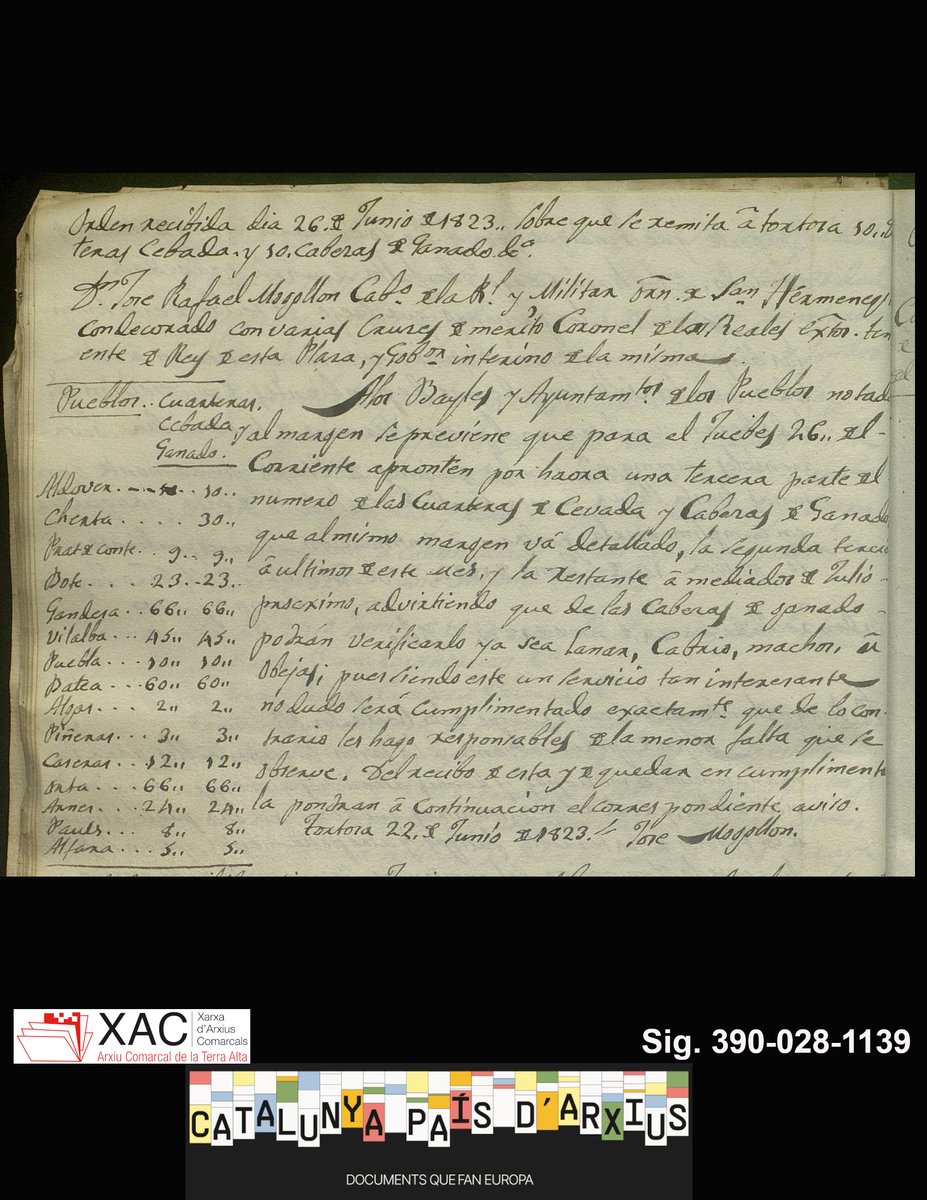 Orden recibida dia 26. de Junio de 1823.. sobre que se remita â tortosa 10..
teras Cebada. y 10. Caberas de Ganado. &a.
Dn. Jose Rafael Mogollon Cabo. de la Rl. y Militar Orn. de San Hermeneg
Condecorado con varias Cruzes de merito Coronel de los Reales Extos. ten
ente de Rey de esta Plaza, y Gobor. interino de la misma.
Pueblos. Cuarteras.
Cebada y
Ganado.
Aldover. 10..
Cherta 30..
Prat de conte. 9.. 9..
Bot 23.. 23..
Gandesa 66.. 66..
Vilalba 45.. 45..
Puebla 10.. 10..
Batea 60.. 60..
Algas 2.. 2..
Piñeras 3.. 3..
Caseras 12.. 12..
Orta 66.. 66..
Arnes 24.. 24..
Pauls 8.. 8..
Alfara 5.. 5..
A los Bayles y Ayuntamtos. de los Pueblos notad
al margen se previene que para el Juebes 26.. del
Corriente apronten por haora una tercera parte del
numero de las Cuarteras de Cevada y Caberas de Ganado
que al mismo margen vá detallado, la segunda tercer
â ultimos de este mes, y la restante â mediados de Julio
procximo, advirtiendo que de las Caberas de ganado
podrán verificarlo ya sea Lanar, Cabrio, machos, û
Obejas; pues siendo este un servicio tan interesante
no dudo será cumplimentado exactamte. que de lo con-
trario les hago responsables de la menor falta que se
observe. Del recibo de esta y de quedar en cumplimento
la pondran â Continuacion el correspondiente aviso.
Tortosa 22. de Junio de 1823. Jose Mogollon.
XAC
Xarxa
d'Arxius
Comarcals
Arxiu Comarcal de la Terra Alta
Sig. 390-028-1139
CATALUNYA PAÍS D'ARXIUS
DOCUMENTS QUE FAN EUROPA